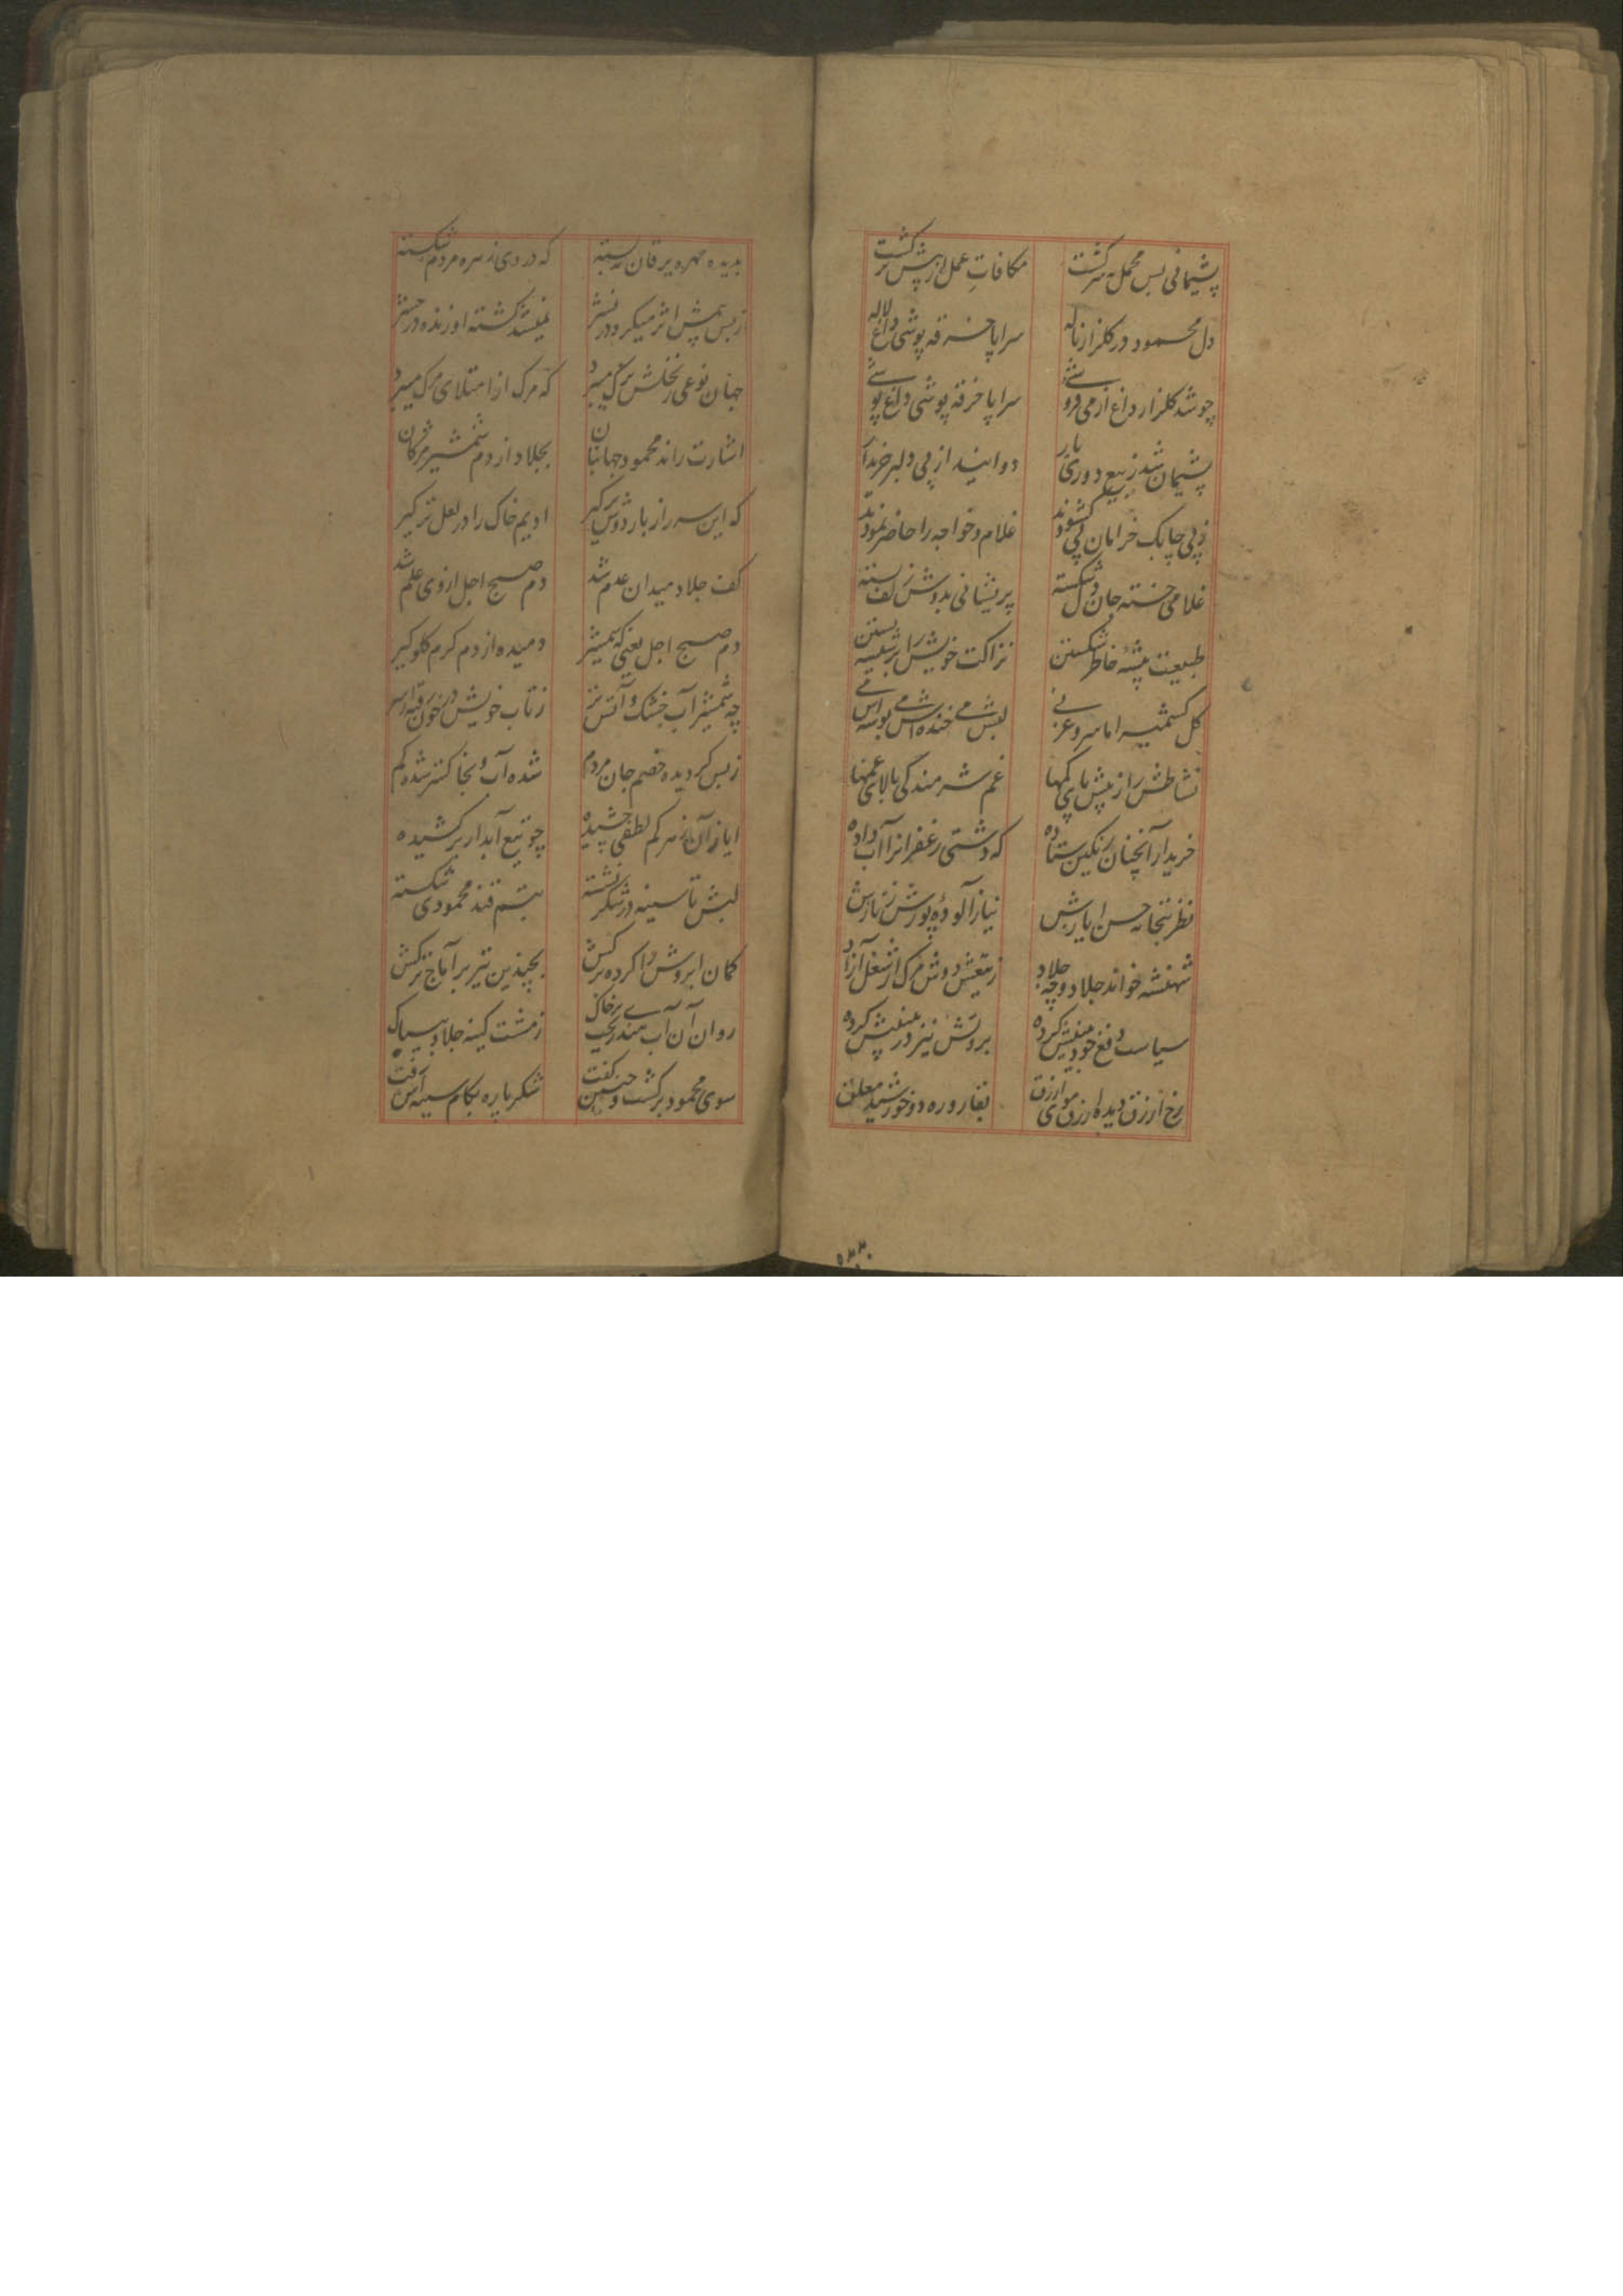 پشیمانی بس محمل تر گشت مکافات عمل از پیش تر گشت
دل محمود در گلزار ناله سراپا خرقه پوشی داغ لاله
چو شد گلزار داغ از می فروشی سراپا خرقه پوشی داغ پوشی
پشیمان شد ز بیع دوری یار دوانید از پی دلبر خریدار
ز پی چابک خرامان پی گشودند غلام و خواجه را حاضر نمودند
غلامی خسته جان و دل شکسته پریشانی بدوش زلف بسته
طبیعت پیشه خاطر شکستن نزاکت خویش را بر شیشه بستن
گل کشمیر اما سرو غزنی لبش می خنده اش می بوسه اش می
نشاطش را ز پیش پای کمها غم شرمندگی بالای غمها
خریدار آنچنان رنگین ستاده که دشتی زعفرانرا آب داده
نظر بتخانه حسن ایازش نیاز آلوده پوزش ز نازش
شهنشه خواند جلاد و چه جلاد ز تیغش دوش مرگ از شغل آزاد
سیاست دفع خود بینیش کرده بروتش نیز در بینیش کرده
رخ ازرق دیده ازرق موی ازرق بقاروره دو خورشید معلق
بدیده مهره یرقان بسته که دردی زهره مردم شکسته
ز بس سمش اثر میکرد در نشر نمیشد کشته او زنده در حشر
جهان نوعی ز نخلش برگ میبرد که مرگ از امتلای مرگ میمرد
اشارت راند محمود جهانبان بجلاد از دم شمشیر مژگان
که این سر را ز بار دوش برگیر ادیم خاک را در لعل تر گیر
کف جلاد میدان عدم شد دم صبح اجل از وی علم شد
دم صبح اجل یعنی که شمشیر دمیده از دم گرم گلوگیر
چه شمشیر آب خشک و آتش تر ز تاب خویش در خون رفته تا سر
ز بس گردیده خصم جان مردم شده آب و بخاکستر شده گم
ایاز آن زهر کم لطفی چشیده چو تیغ آبدار برکشیده
لبش تا سینه در شکر نشسته تبسم قند محمودی شکسته
کمان ابروش را کرده برکش بچندین تیر بر آماج ترکش
روان آن آب می‌ریخت بر خاک ز مشت کینه جلاد بیباک
سوی محمود برگشت و چنین گفت شکر پاره بکام سینه